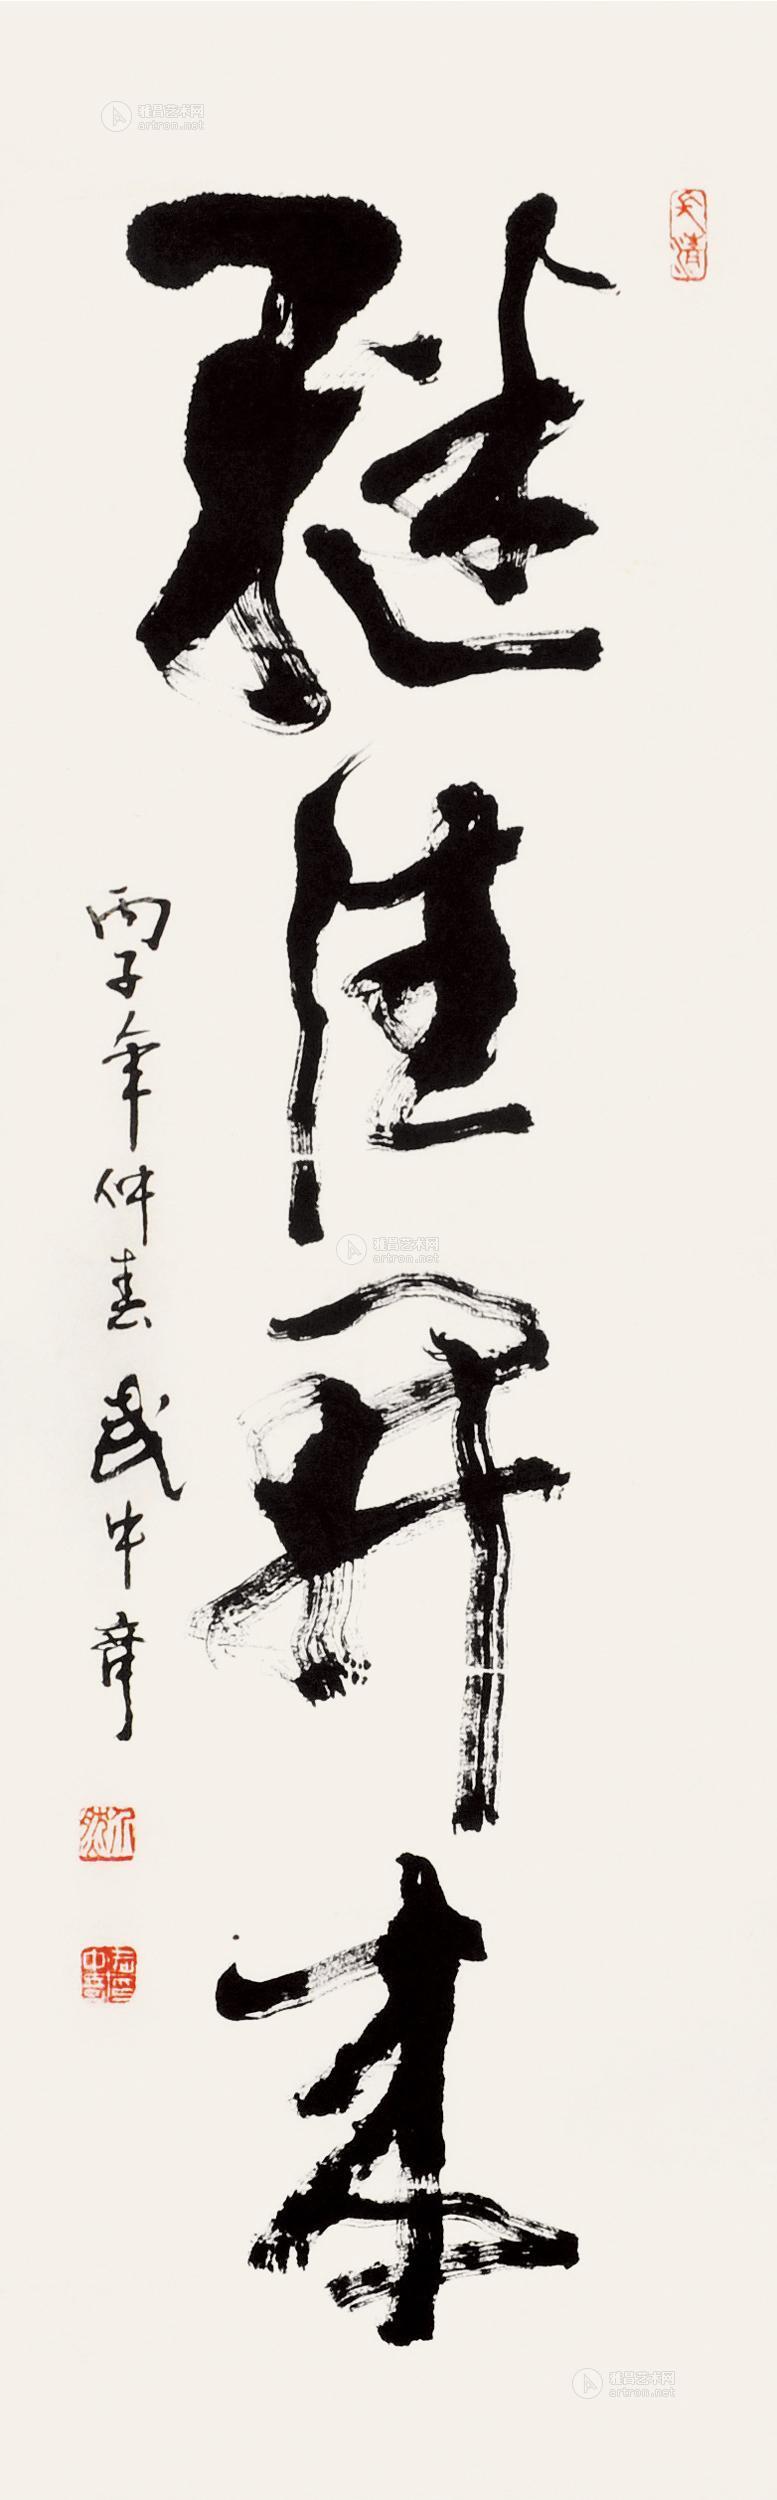 继往开来
丙子年仲春武中奇
雅昌艺术网
artron.net
雅昌艺术网
artron.net
雅昌艺术网
artron.net